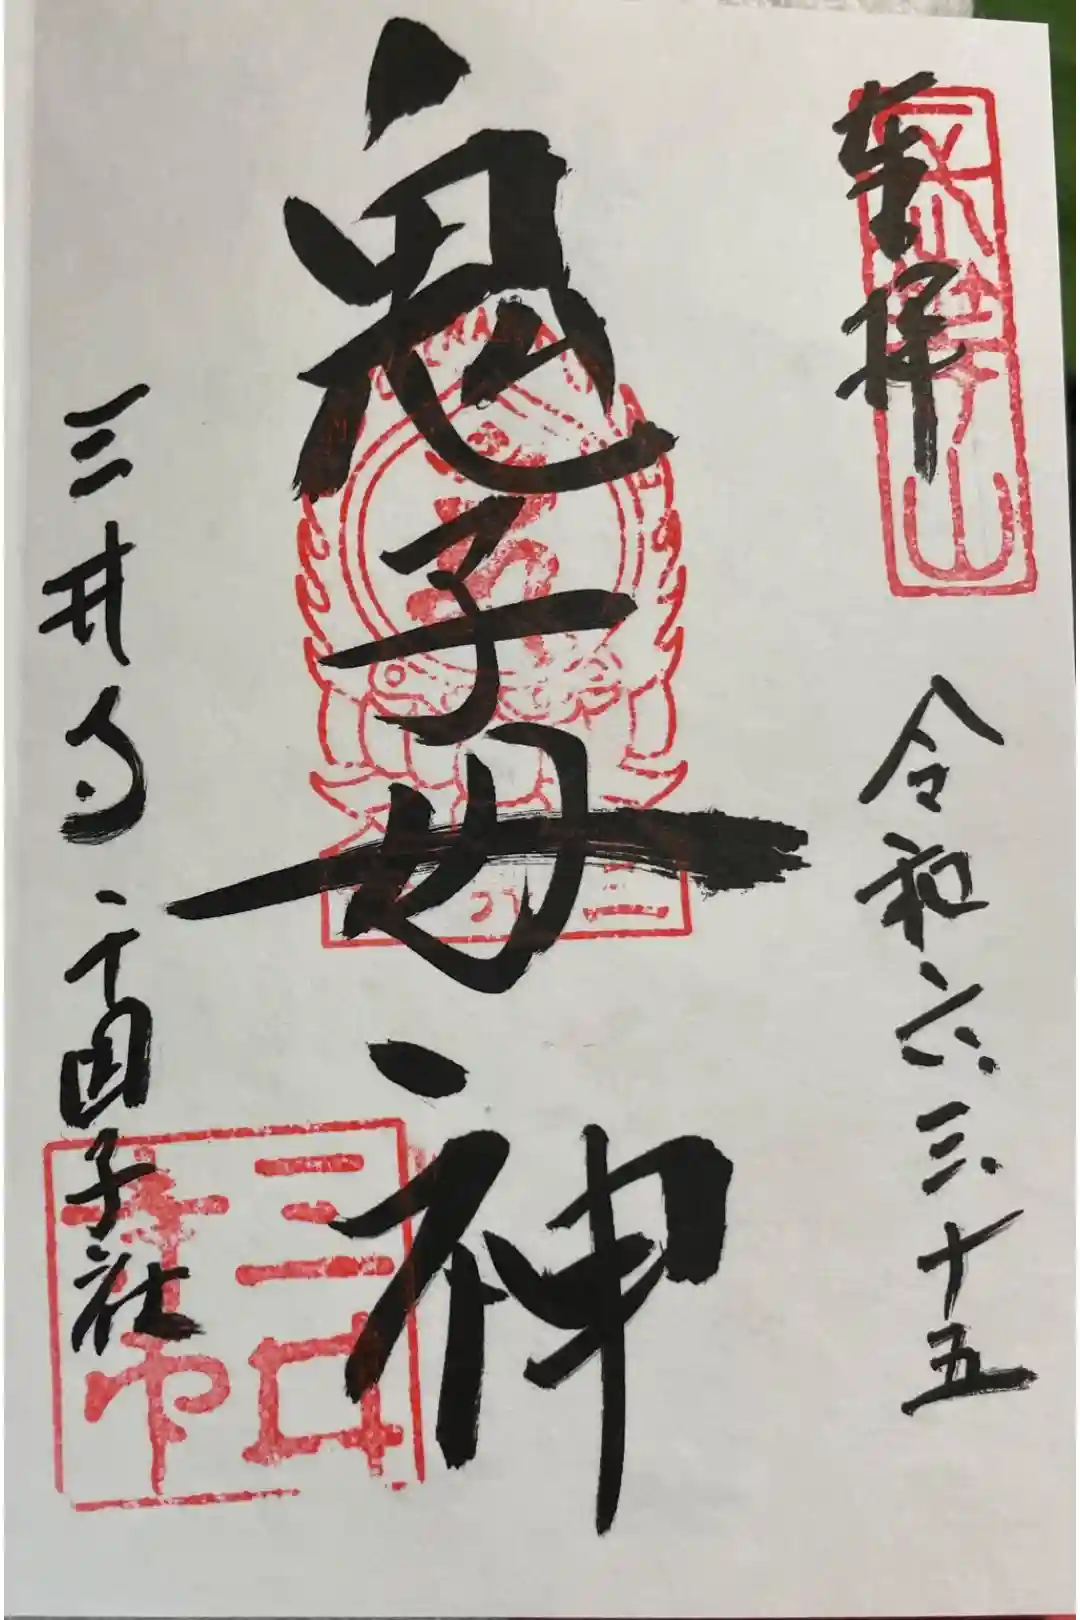 奉拝
令和六.三.十五
鬼子母神
三井寺 千団子社
三井
寺印